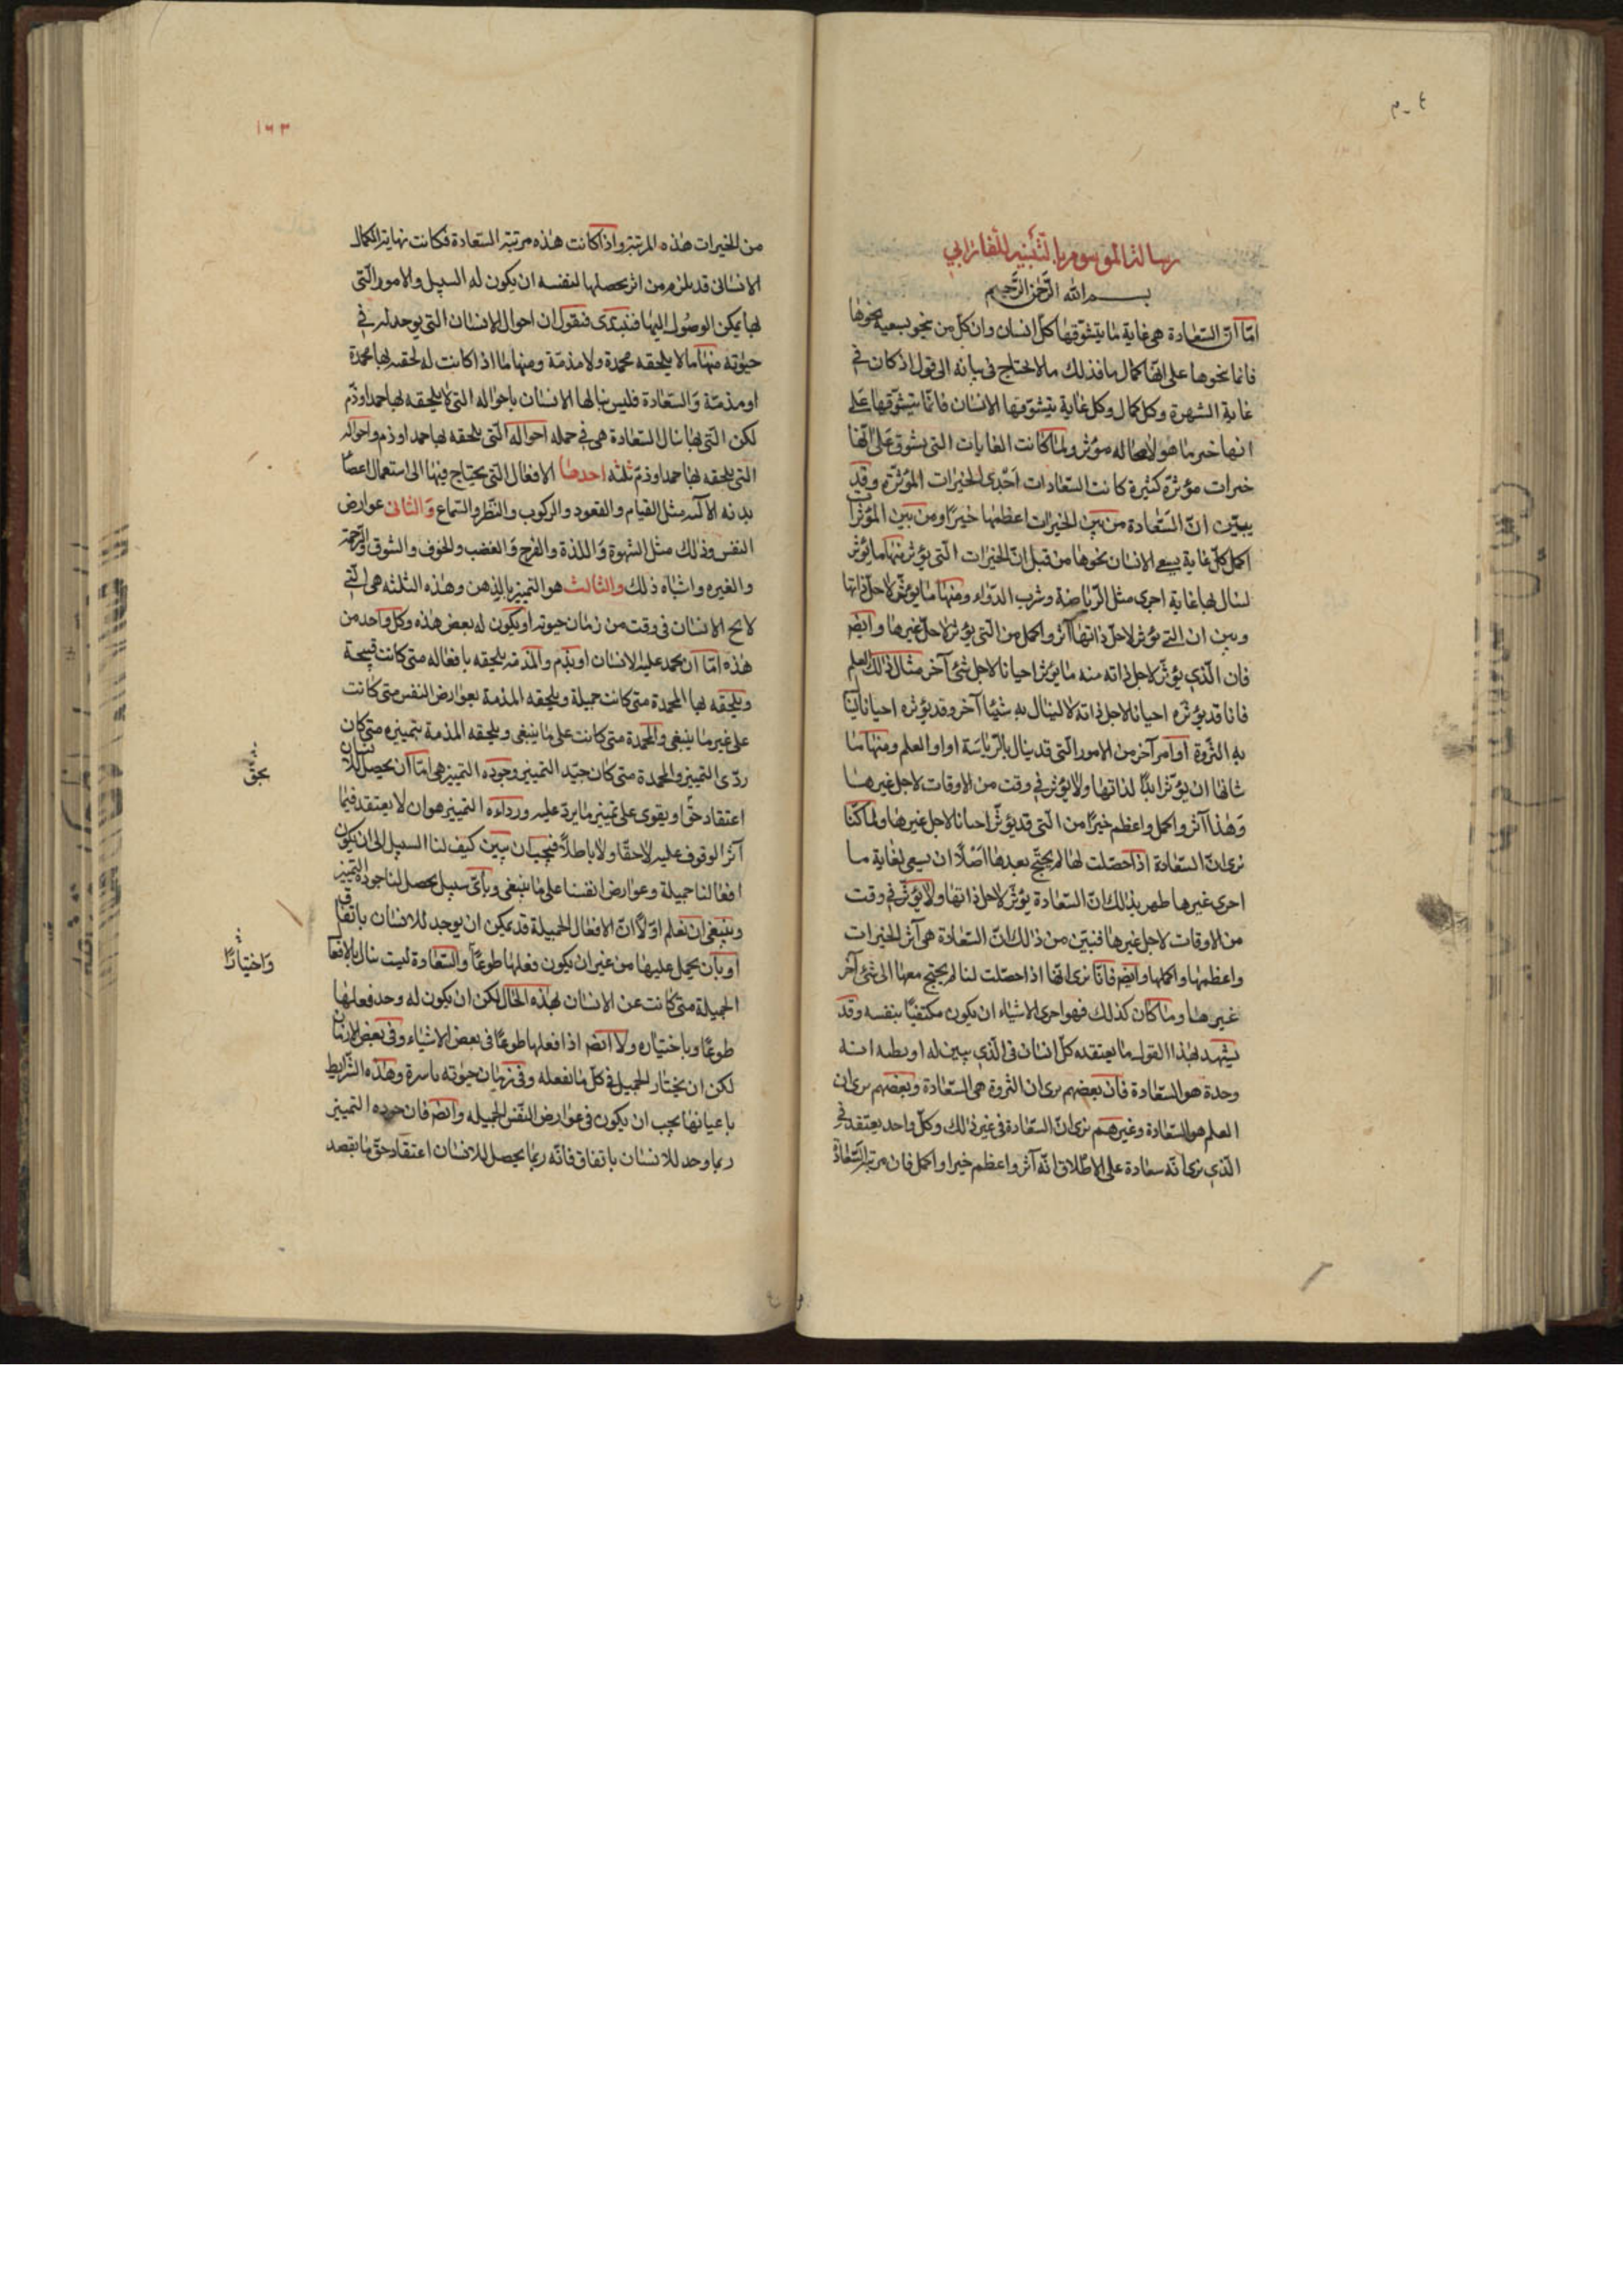 ٤ ـ م
رسالة الموسومة بالتنبيه للفارابي
بسم الله الرحمن الرحيم
اما ان السعادة هى غاية ما يتشوقها كل انسان وان كل من ينحو بسعيه نحوها
فانما ينحوها على انها كمال ما فذلك ما لا يحتاج فى بيانه الى قول اذ كان فى
غاية الشهرة وكل كمال وكل غاية يتشوقها الانسان فانما يتشوقها على
انها خير ما هو لا محاله مؤثر ولما كانت الغايات التى يشوق على انها
خيرات مؤثرة كثيرة كانت السعادات احدى الخيرات المؤثرة وقد
يبين ان السعادة من بين الخيرات اعظمها خيرا ومن بين المؤثرات
اكمل كل غاية يسعى الانسان نحوها من قبل ان الخيرات التى يؤثر منها ما يؤثر
لينال بها غاية اخرى مثل الرياضة وشرب الدواء ومنها ما يؤثر لاجل ذاتها
وبين ان التى يؤثر لاجل ذاتها آثر واكمل من التى يؤثر لاجل غيرها وايضا
فان الذى يؤثر لاجل ذاته منه ما يؤثر احيانا لاجل شئ آخر مثال ذلك العلم
فانا قد يؤثره احيانا لاجل ذاته لا لينال به شيئا آخر وقد يؤثره احيانا لينا
به الثروة او امر آخر من الامور التى قد ينال بالرياسة او او العلم ومنها ما
شانها ان يؤثر ابدا لذاتها ولا يؤثر فى وقت من الاوقات لاجل غيرها
وهذا آثر واكمل واعظم خيرا من التى قد يؤثر احيانا لاجل غيرها ولما كنا
نرى ان السعادة اذا حصلت لها لم يحتج بعدها اصلا ان يسعى لغاية ما
اخرى غيرها ظهر بذلك ان السعادة يؤثر لاجل ذاتها ولا يؤثر فى وقت
من الاوقات لاجل غيرها فتبين من ذلك ان السعادة هى آثر الخيرات
واعظمها واكملها وايضا فانا نرى انها اذا حصلت لنا لم يحتج معها الى شئ آخر
غيرها وما كان كذلك فهو احرى الاشياء ان يكون مكتفيا بنفسه وقد
يشهد بهذا القول ما يعتقده كل انسان فى الذى يبين له او يظنه انه
وحدة هو السعادة فان بعضهم يرى ان الثروة هى السعادة وبعضهم يرى ان
العلم هو السعادة وغيرهم يرى ان السعادة فى غير ذلك وكل واحد يعتقد فى
الذى يرى انه سعادة على الاطلاق انه آثر واعظم خيرا واكمل فان مرتبة السعادة
١٦٣
من الخيرات هذه المرتبة واذا كانت هذه مرتبة السعادة فكانت نهاية الكمال
الانسانى قد يلزم من اثر يحصلها لنفسه ان يكون له السبيل والامور التى
بها يمكن الوصول اليها فنبتدى فنقول ان احوال الانسان التى يوجد له فى
حيوته منها ما لا يلحقه محمدة ولا مذمة ومنها ما اذا كانت له لحقه بها محمدة
او مذمة والسعادة فليس ينالها الانسان باحواله التى لا يلحقه بها حمد او ذم
لكن التى بها ينال السعادة هى فى جمله احواله التى يلحقه بها حمد او ذم واحواله
التى يلحقه بها حمد او ذم ثلثه احدها الافعال التى يحتاج فيها الى استعمال اعضا
بدنه الآلية مثل القيام والقعود والركوب والنظر والسماع والثانى عوارض
النفس وذلك مثل الشهوة واللذة والفرح والغضب والخوف والشوق والرحمة
والغيره واشباه ذلك والثالث هو التمييز بالذهن وهذه الثلثه هى التى
لا يخ الانسان فى وقت من زمان حيوته او يكون له بعض هذه وكل واحد من
هذه اما ان يحمد عليه الانسان او يذم والمذمة يلحقه بافعاله متى كانت قبيحة
ويلحقه بها المحمدة متى كانت جميلة ويلحقه المذمة بعوارض النفس متى كانت
على غير ما ينبغى والمحمدة متى كانت على ما ينبغى ويلحقه المذمة بتمييزه متى كان
ردى التمييز والمحمدة متى كان جيد التمييز وجوده التمييز هى اما ان يحصل للانسان
اعتقاد حق او يقوى على تمييز ما يرد عليه ورداءه التمييز هو ان لا يعتقد فيما
آثر الوقوف عليه لا حقا ولا باطلا فيجب ان يبين كيف لنا السبيل الى ان يكون
افعالنا جميلة وعوارض انفسنا على ما ينبغى وباى سبيل يحصل لنا جودة التمييز
وينبغى ان نعلم اولا ان الافعال الجميلة قد يمكن ان يوجد للانسان باتفاق
او بان يحمل عليها من غير ان يكون فعلها طوعا والسعادة ليست ينال بالافعا
الجميلة متى كانت عن الانسان بهذه الحال لكن ان يكون له وحد فعلها
طوعا وباختياره ولا ايضا اذا فعلها طوعا فى بعض الاشياء وفى بعض الازمان
لكن ان يختار الجميل فى كل ما يفعله وفى زمان حيوته باسره وهذه الشرايط
باعيانها يجب ان يكون فى عوارض النفس الجميله وايضا فان جوده التمييز
ربما وجد للانسان باتفاق فانه ربما يحصل للانسان اعتقاد حق ما بقصد
بحق
واختيارا